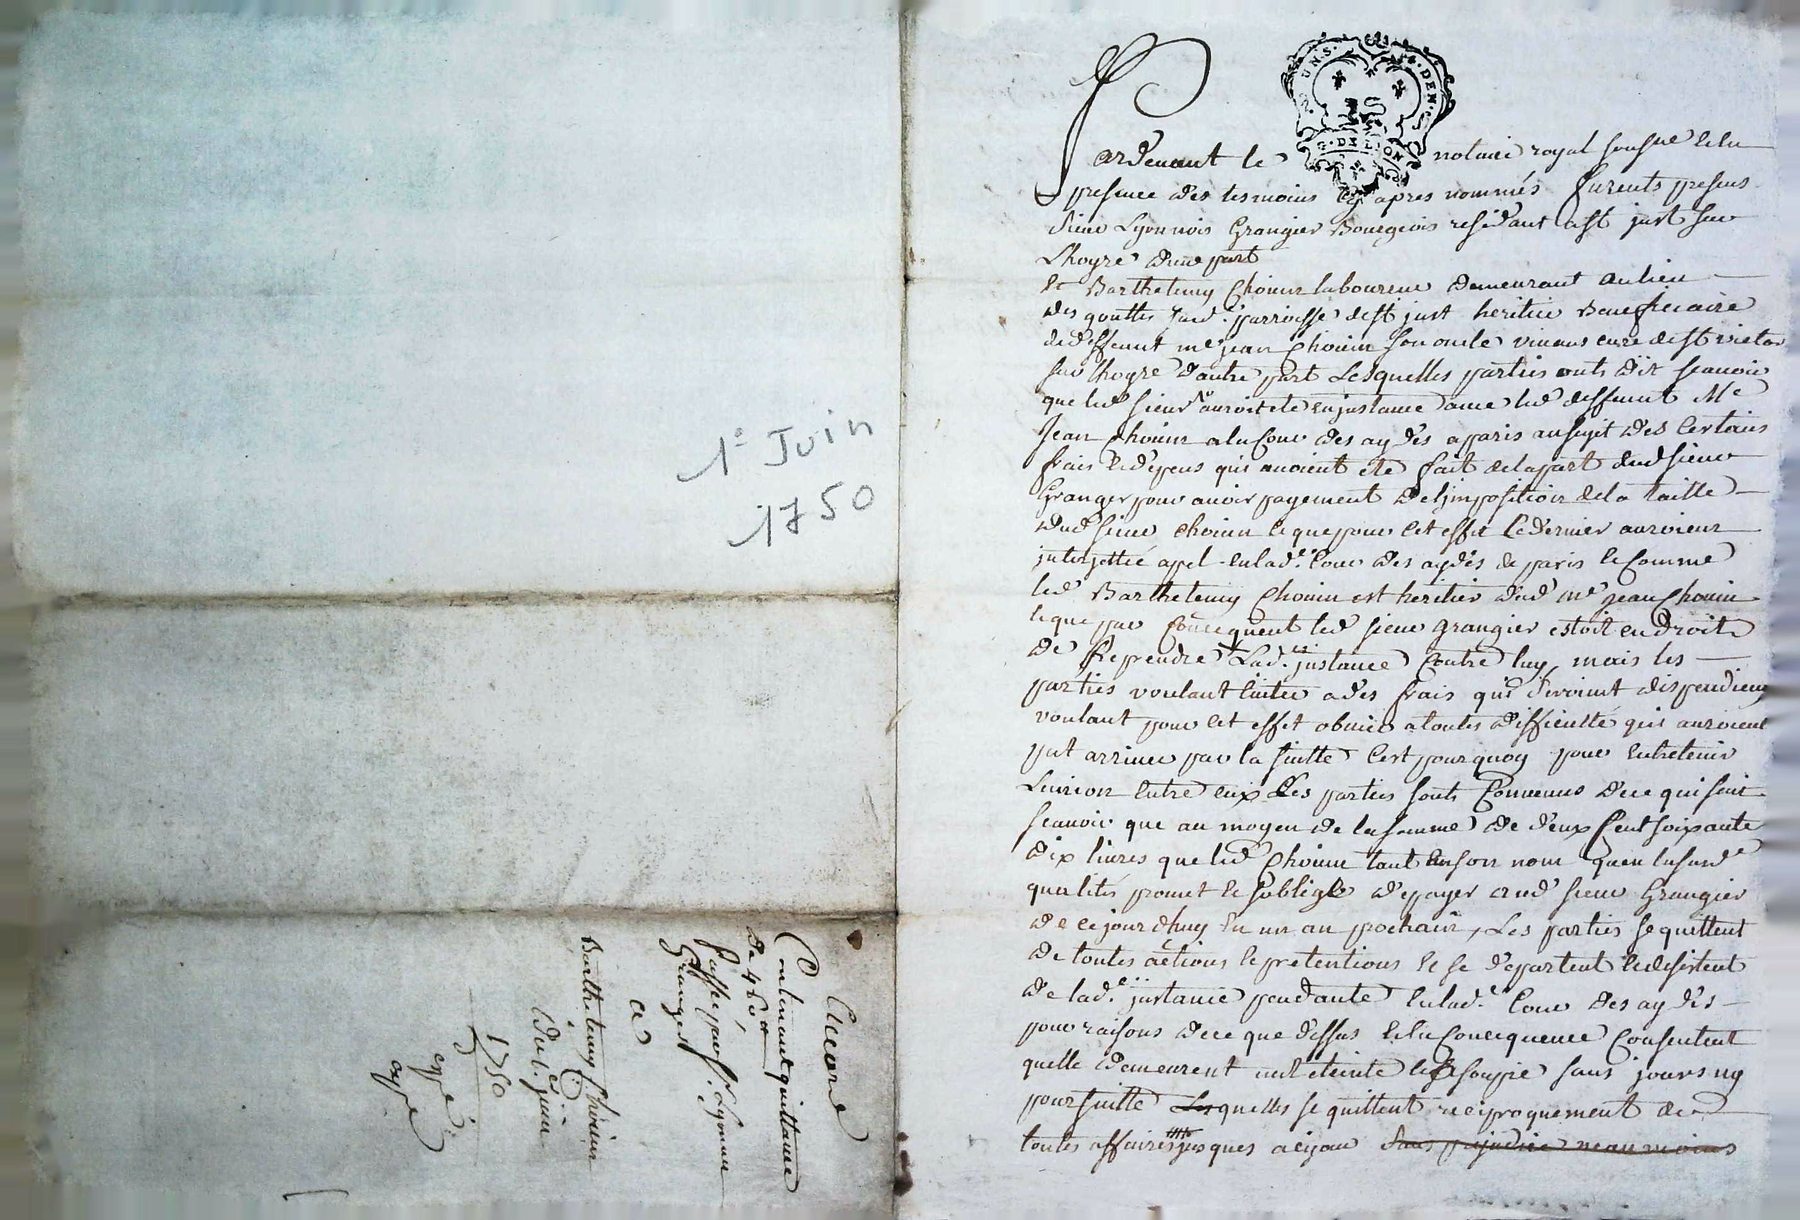 1e Juin
1750
Accord
Contenant quittance
de 460 ₶
Passée par Sr. Lyonnois
Granger
a
Barthelemy Chouin
Du 1er juin
1750
expé
expé
2. UNS. 4. DEN.
G. DE LYON
Pardevant le notaire royal soussné et en
presence des tesmoins cy apres nommés furents presens
sieur Lyonnois Grangier Bourgeois residant a st just sur
Lhoyre d'une part
et Barthelemy Chouin laboureur demeurant au lieu
des gouttes parroisse de st just heritier Beneficiaire
de deffunt me jean Chouin son oncle vivans curé de st victor
sur lhoyre d'autre part Lesquelles parties onts dit scavoir
que led sieur auroit eté en jnstance avec led deffunt Me
Jean Chouin a la Cour des aydes a paris au sujet des Certains
frais et depens qui avoient eté fait de la part dud sieur
Granger pour avoir payement de l'jmposition de la taille
dud sieur Chouin et que pour cet effet ce dernier auroient
jnterjetté apel en lad.e Cour des aydes de paris et Comme
led Barthelemy Chouin est heritier dud me jean Chouin
et que par Concequent led sieur grangier estoit en droit
de Reprendre Lad.e jnstance Contre luy, mais les
parties voulant eviter a des frais qui seroint dispendieux
voulant pour cet effet obvier a toutes difficulté qui auroient
put arriver par la suitte C'est pourquoy pour entretenir
L'union entre eux Les parties sonts Convenus de ce qui suit
scavoir que au moyen de la somme de deux Cent soixante
dix livres que led Chouin tant en son nom qu'en la susd.e
qualités promet et s'oblige de payer aud sieur Grangier
de ce jourdhuy en un an prochain, Les parties se quittent
de toutes actions et pretentions et se departent et desistent
de lad.e jnstance pendante en lad.e Cour des aydes
pour raisons de ce que dessus et en Concequence Consentent
quelle demeurent et assoupie sans jours ny
poursuitte Lesquelles se quittent reciproquement de
toutes affaires jusques a ce jour sans prejudice neanmoins